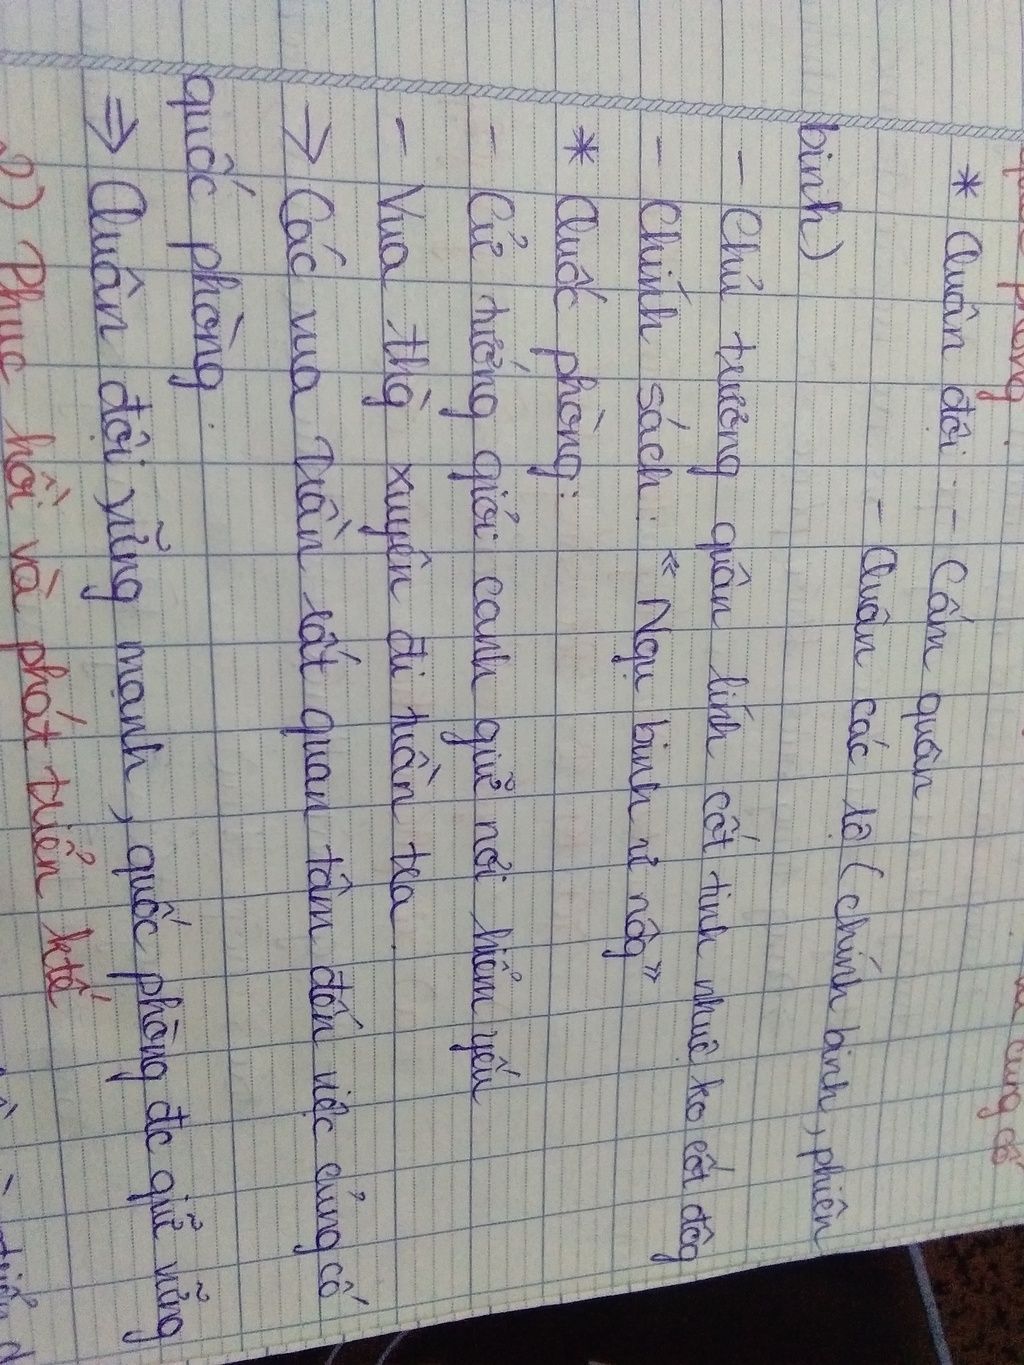 phòng
củng cố
* Quân đội: - Cấm quân
- Quân các lộ (chính binh, phiên
binh)
- Chủ trương quân lính cốt tinh nhuệ ko cốt đôg
- Chính sách: "Ngụ binh ư nôg"
* Quốc phòng:
- Cử tướng giỏi canh giữ nơi hiểm yếu
- Vua thg xuyên đi tuần tra.
→ Các vua Trần rất quan tâm đến việc củng cố
quốc phòng.
⇒ Quân đội vững mạnh, quốc phòng đc giữ vững
2) Phục hồi và phát triển ktế